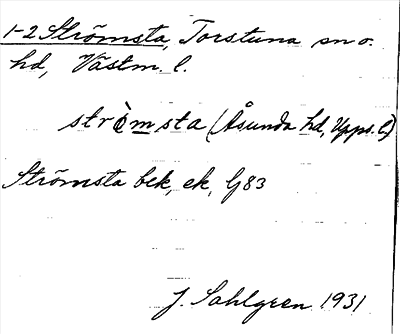 1-2 Strömsta, Torstuna sn o.
hd, Västm. l.
strö̀msta (Åsunda hd, Upps. l.)
Strömsta bek, ek, G83
J. Sahlgren 1931